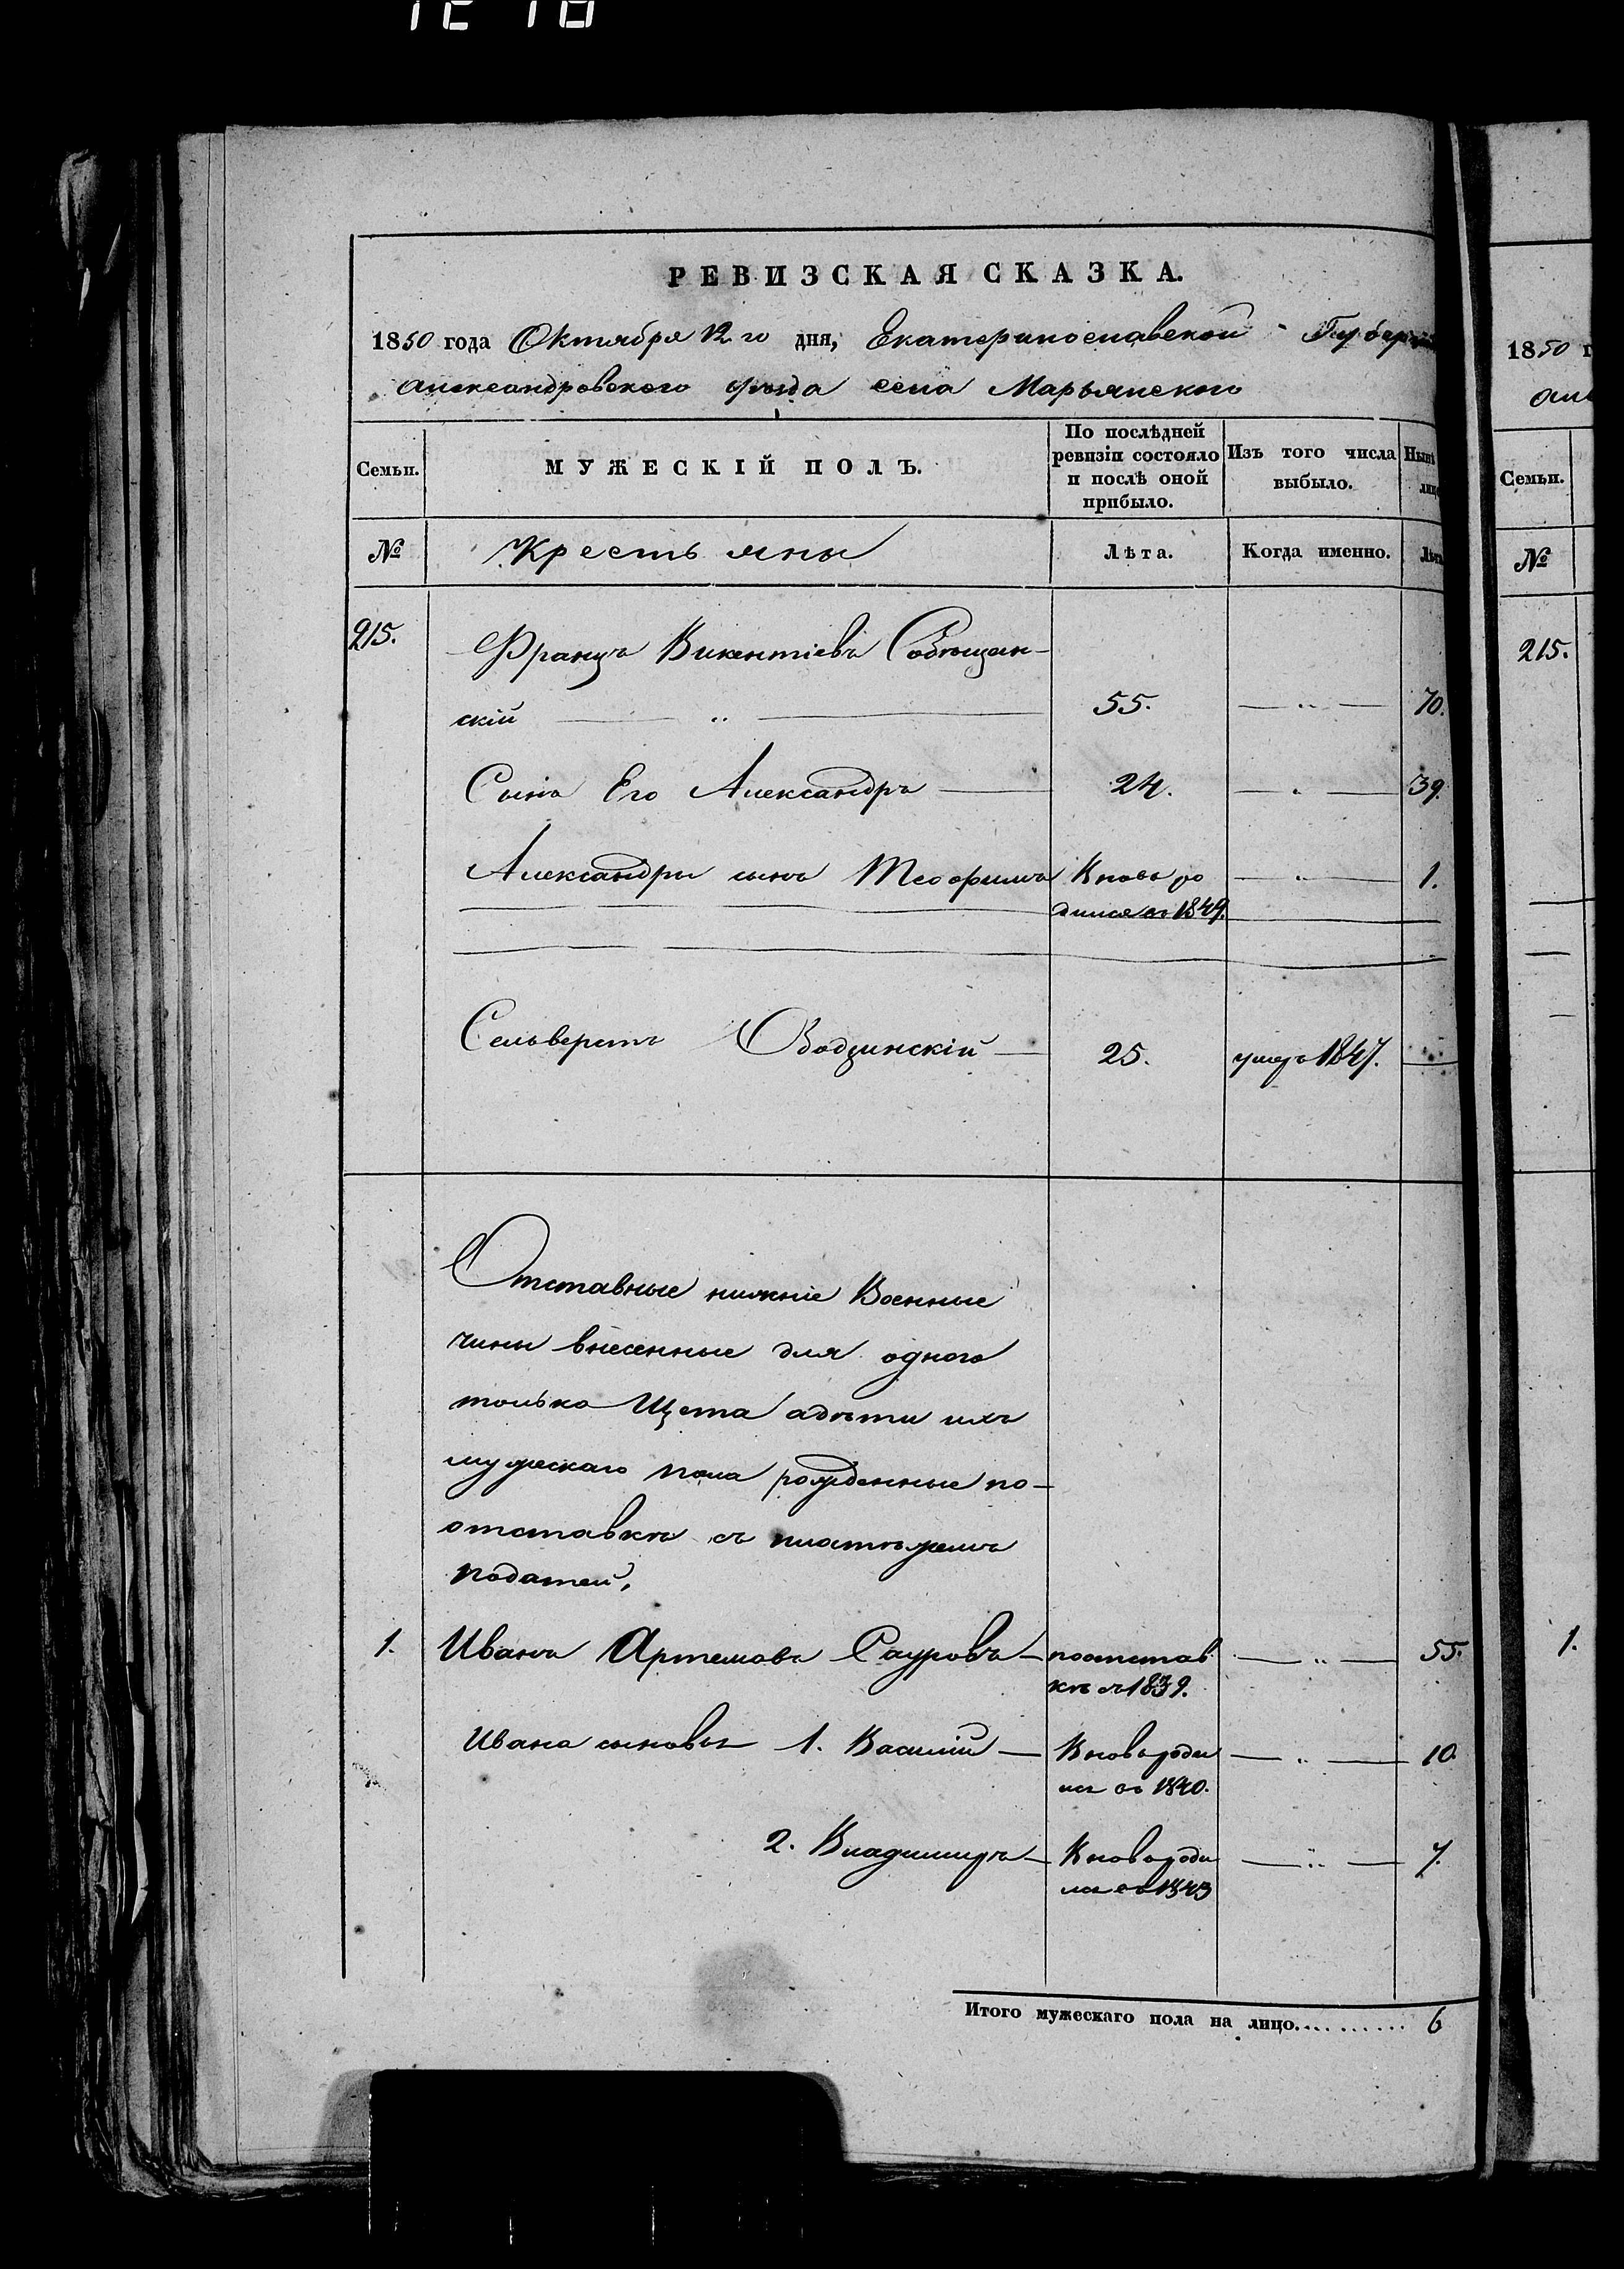 РЕВИЗСКАЯ СКАЗКА.
1850 года Октября 12 го дня, Екатеринославской Губернии
Александровского уѣзда села Марьянского
Семьи.
МУЖЕСКІЙ ПОЛЪ.
По послѣдней
ревизіи состояло
и послѣ оной
прибыло.
Изъ того числа
выбыло.
№
Крестьяны
Лѣта.
Когда именно.
215.
Францъ Викентіевъ Собѣщан-
скій 55. 70.
Сынъ Его Александръ 24. 39.
Александра сынъ Теофилъ Вновь ро 1.
дился въ 1849.
Сельверстъ 25. умеръ 1847.
Отставные нижніе Военные
чины внесенные для одного
только Щета адѣти ихъ
мужескаго пола рожденные по-
отставкѣ съ платежемъ
податей.
1. Иванъ Артемовъ поотстав 55.
кѣ съ 1839.
Ивана сыновья 1. Василій Вновь роди 10.
лся въ 1840.
2. Владимиръ Вновь роди 7.
лся въ 1843
Итого мужескаго пола на лицо.......... 6
1850 г
Семьи.
№
215.
1.